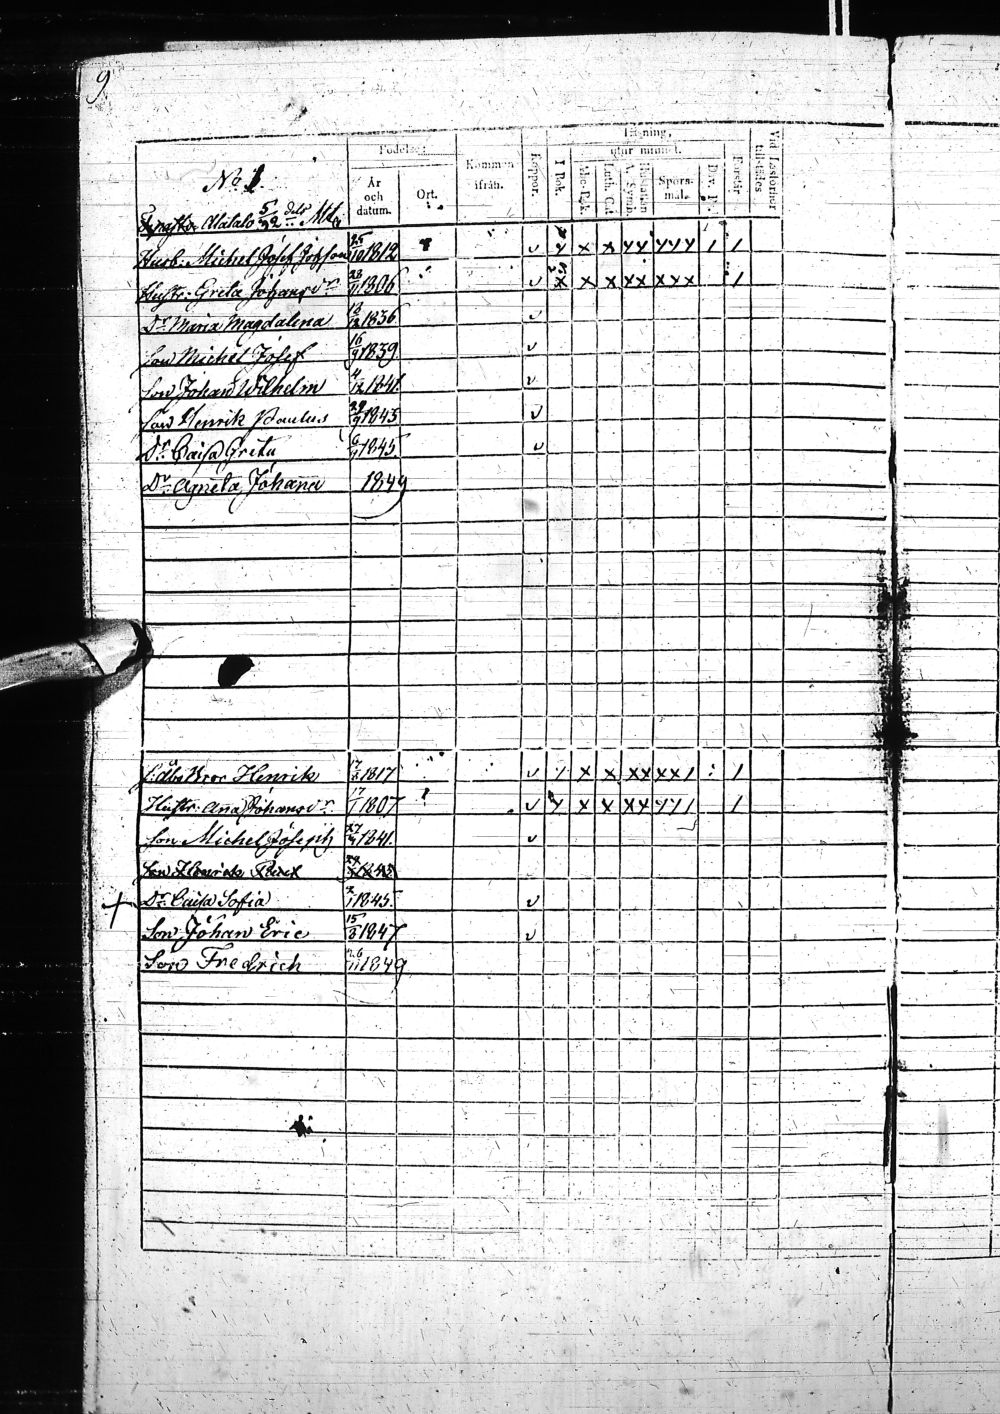 9.
No 1.
Alatalo 5/92 dels Mtl
Födelse:
År och datum.
Ort.
Kommen ifrån.
Koppor.
Läsning,
utur minnet.
I Bok.
Abc-Bok.
Luth. C.
A. Symb.
Hustaflan
Spörsmål.
Dav. P.
Förstår
Vid Läsförhör tillstädes
Husb: Michel Josef Johsson 25/10 1812 v x x x x x x x x 1 1
Hustr: Greta Johans dr 23/11 1806 v x x x x x x x x 1
Dr Maria Magdalena 13/12 1836 v
Son Michel Josef 16/9 1839 v
Son Johan Wilhelm 4/12 1841 v
Son Henrik Paulus 29/9 1843 v
Dr Caisa Greta 6/9 1845 v
Dr Agneta Johana 1849
Åbo Bror Henrik 1817 v 1 x x x x x x 1 1
Hustr: Ana Johans dr 17/1 1807 v x x x x x x x 1 1
Son Michel Joseph 1841. v
Son Henrik 1843
Dr Caisa Sofia 1845. v
Son Johan Eric 1847 v
Son Fredrich 26/11 1849